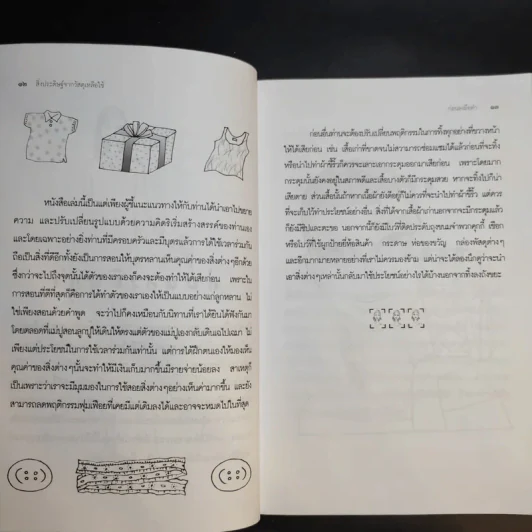 ๑๒ สิ่งประดิษฐ์จากวัสดุเหลือใช้
หนังสือเล่มนี้เป็นแต่เพียงผู้ชี้แนะแนวทางให้กับท่านได้นำเอาไปขยาย
ความ และปรับเปลี่ยนรูปแบบด้วยความคิดริเริ่มสร้างสรรค์ของท่านเอง
และโดยเฉพาะอย่างยิ่งท่านที่มีครอบครัวและมีบุตรแล้วการได้ใช้เวลาร่วมกัน
ถือเป็นสิ่งที่ดีอีกทั้งยังเป็นการสอนให้บุตรหลานเห็นคุณค่าของสิ่งต่างๆอีกด้วย
ซึ่งกว่าจะไปถึงจุดนั้นได้ตัวของเราเองก็คงจะต้องทำให้ได้เสียก่อน เพราะใน
การสอนที่ดีที่สุดก็คือการได้ทำตัวของเราเองให้เป็นแบบอย่างแก่ลูกหลาน ไม่
ใช่เพียงสอนด้วยคำพูด จะว่าไปก็คงเหมือนกับนิทานที่เราได้ยินได้ฟังกันมา
โดยตลอดที่แม่ปูสอนลูกปูให้เดินให้ตรงแต่ตัวของแม่ปูเองกลับเดินเฉไปเฉมา ไม่
เพียงแต่ประโยชน์ในการใช้เวลาร่วมกันเท่านั้น แต่การได้ฝึกตนเองให้มองเห็น
คุณค่าของสิ่งต่างๆนั้นจะทำให้มีเงินเก็บมากขึ้นมีรายจ่ายน้อยลง สาเหตุก็
เป็นเพราะว่าเราจะมีมุมมองในการใช้สอยสิ่งต่างๆอย่างเห็นค่ามากขึ้น และยัง
สามารถลดพฤติกรรมฟุ่มเฟือยที่เคยมีแต่เดิมลงได้และอาจจะหมดไปในที่สุด
ก่อนลงมือทำ ๑๓
ก่อนอื่นท่านจะต้องปรับเปลี่ยนพฤติกรรมในการทิ้งทุกอย่างที่ขวางหน้า
ให้ได้เสียก่อน เช่น เสื้อเก่าที่ขาดจนไม่สามารถซ่อมแซมได้แล้วก่อนที่จะทิ้ง
หรือนำไปทำผ้าขี้ริ้วก็ควรจะเลาะเอากระดุมออกมาเสียก่อน เพราะโดยมาก
กระดุมนั้นยังคงอยู่ในสภาพดีและเสื้อบางตัวก็มีกระดุมสวย หากจะทิ้งไปก็น่า
เสียดาย ส่วนเสื้อนั้นถ้าหากเนื้อผ้ายังดีอยู่ก็ไม่ควรที่จะนำไปทำผ้าขี้ริ้ว แต่ควร
ที่จะเก็บไว้ทำประโยชน์อย่างอื่น สิ่งที่ได้จากเสื้อผ้าเก่านอกจากจะมีกระดุมแล้ว
ก็ยังมีซิปและตะขอ นอกจากนี้ก็ยังมีโบว์ที่ติดประดับถุงขนมจำพวกคุกกี้ เชือก
หรือโบว์ที่ใช้ผูกป้ายยี่ห้อสินค้า กระดาษ ห่อของขวัญ กล่องพัสดุต่างๆ
และอีกมากมายหลายอย่างที่เราไม่ควรมองข้าม แต่น่าจะได้ลองนึกดูว่าจะนำ
เอาสิ่งต่างๆเหล่านั้นกลับมาใช้ประโยชน์อย่างไรได้บ้างนอกจากทิ้งลงถังขยะ